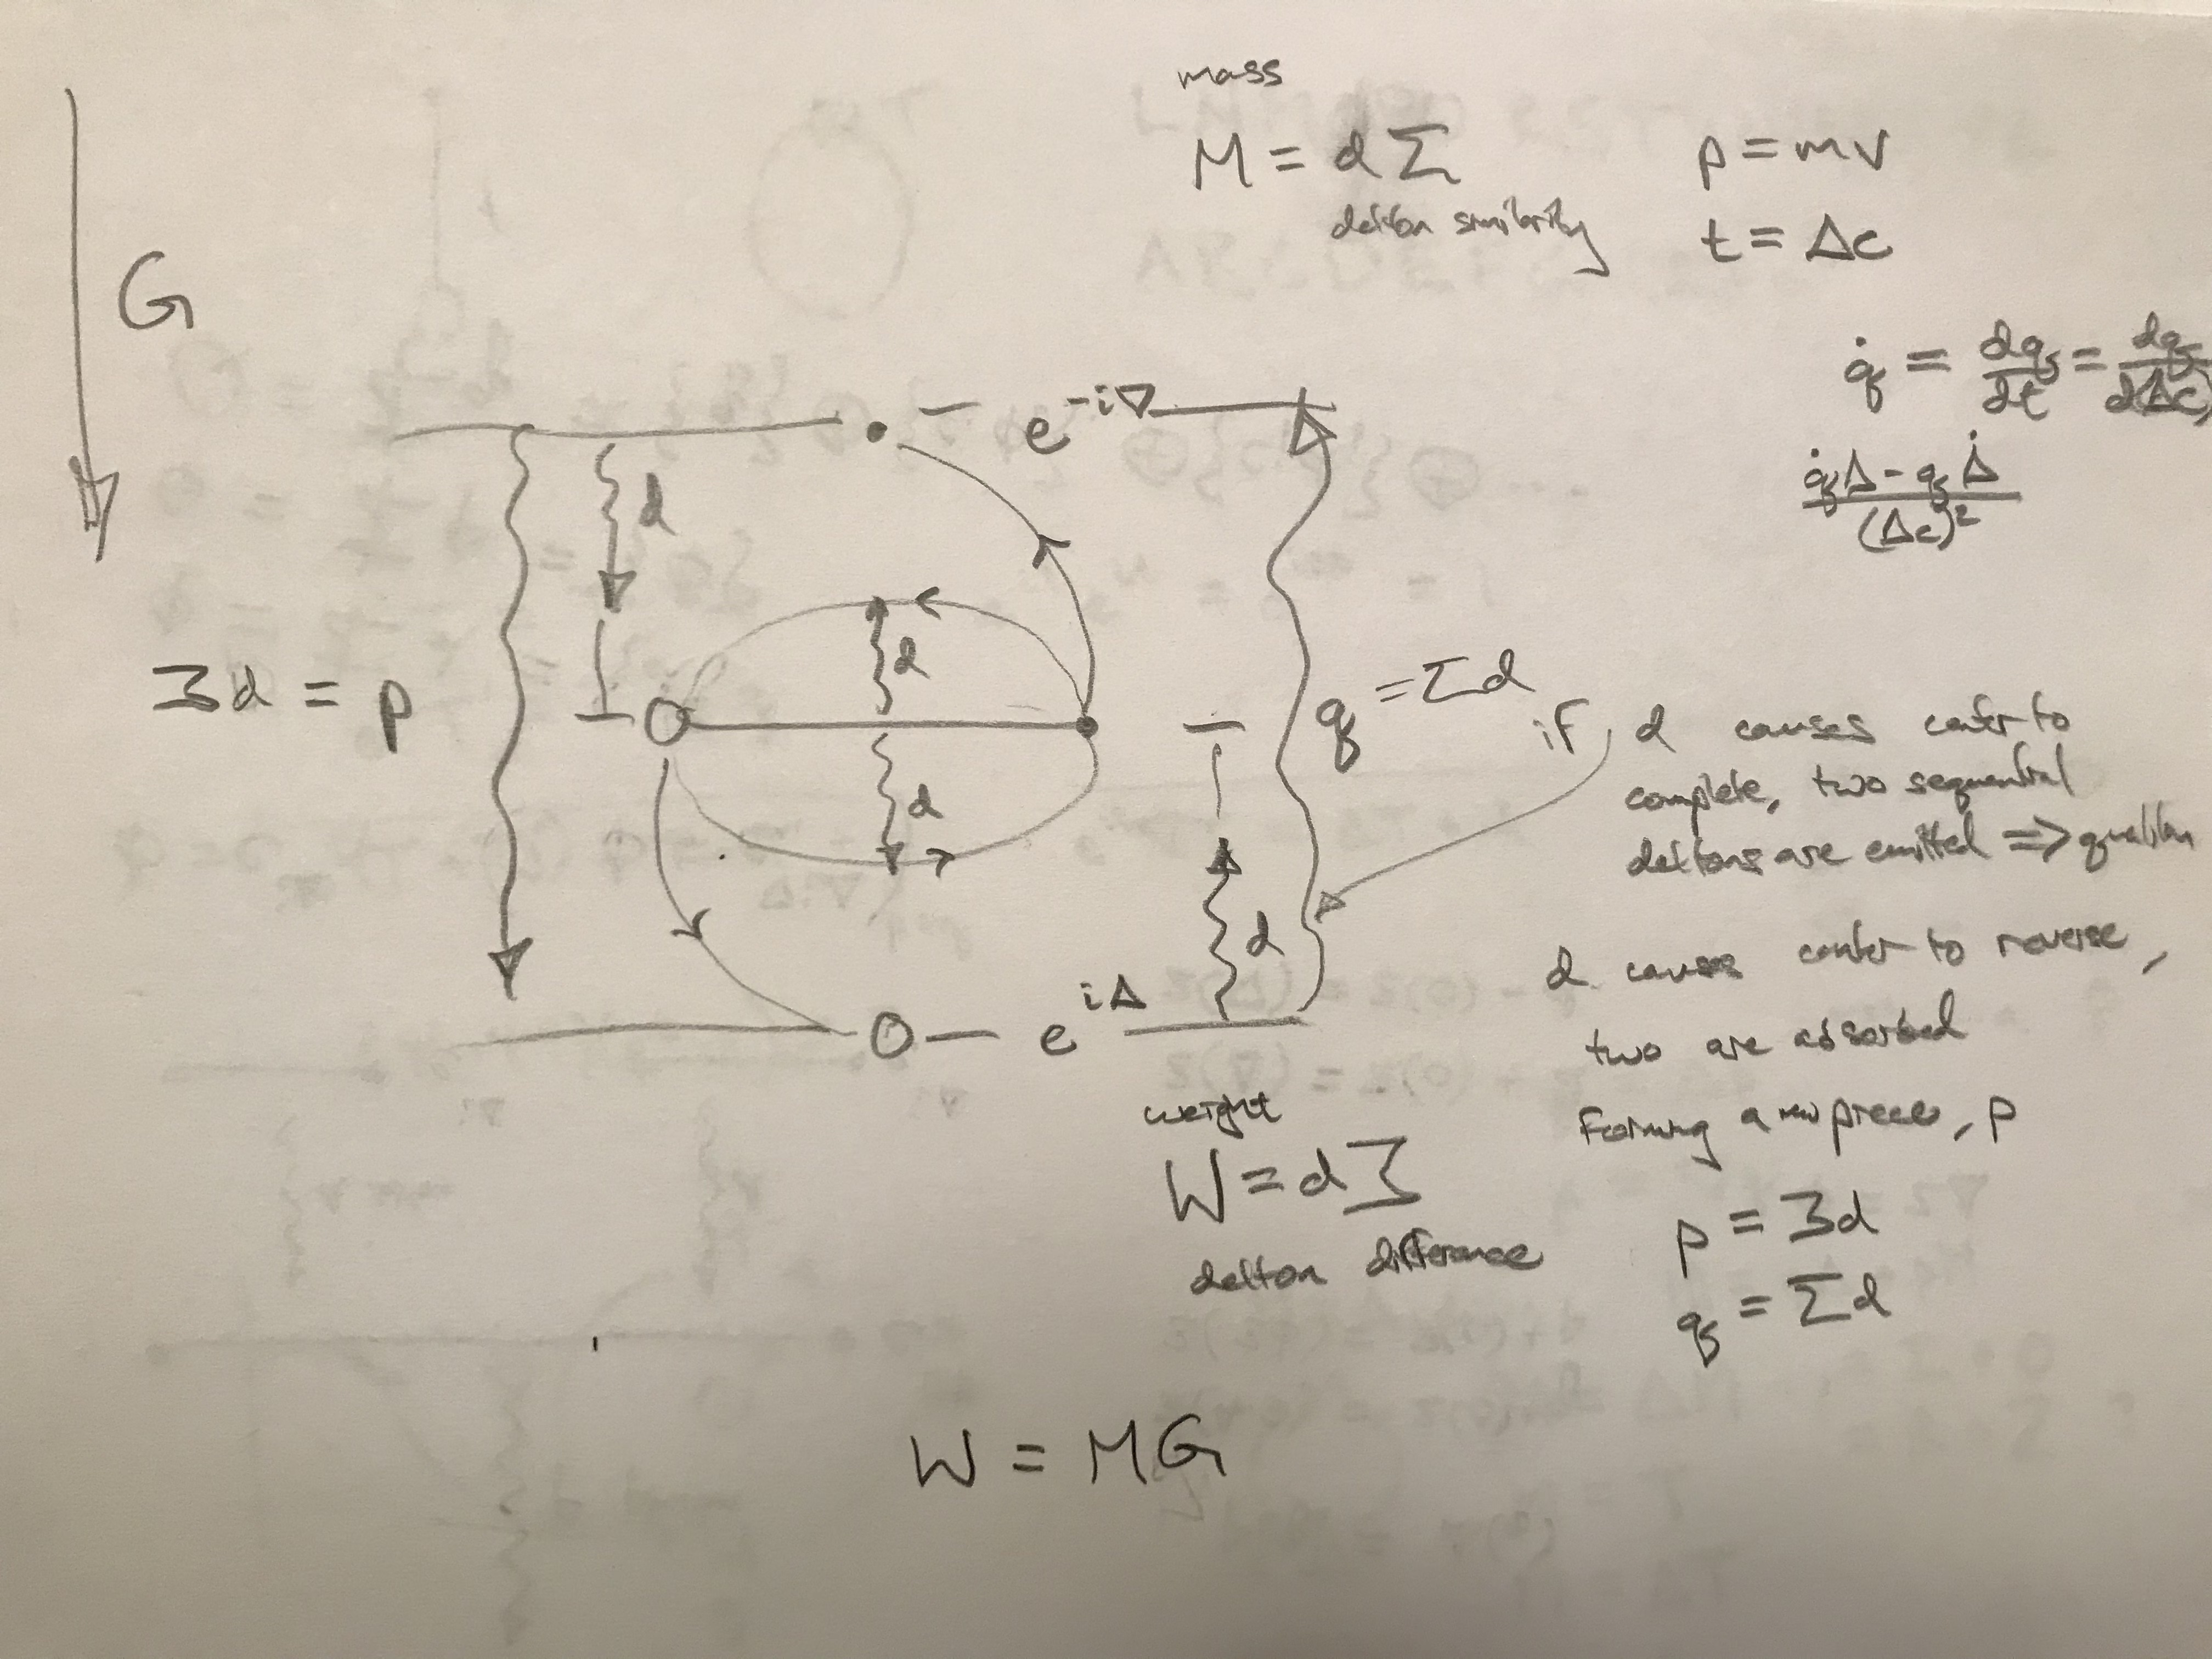 mass
M = d Σ
delton similarity
p = mv
t = Δc
G
q̇ = dq/dt = dq/d(Δc)
(q̇Δ - qΔ̇)/(Δc)²
e^-i∇
d
d
Ʒd = p
q = Σd
if d causes center to
complete, two sequential
deltons are emitted => qualiton
d
d
d causes center to reverse,
two are absorbed
forming a new piece, p
e^iΔ
weight
W = d Ʒ
delton difference
p = Ʒd
q = Σd
W = MG